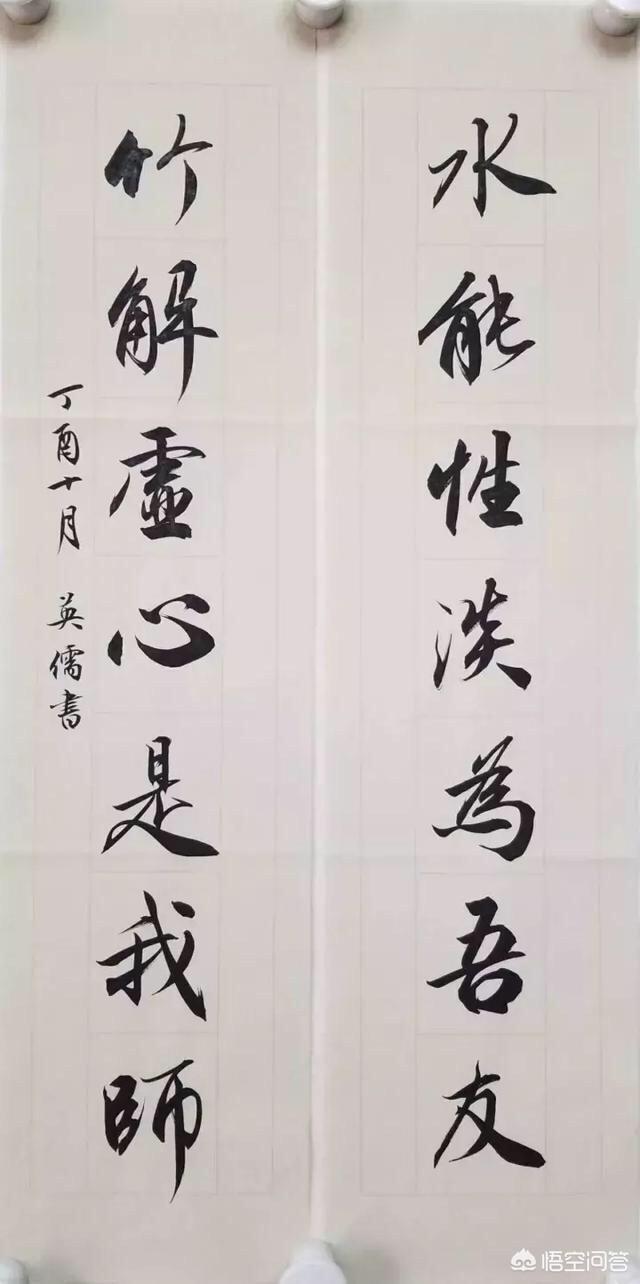 水能性淡為吾友
竹解虛心是我師
丁酉十月 英儒書
悟空问答